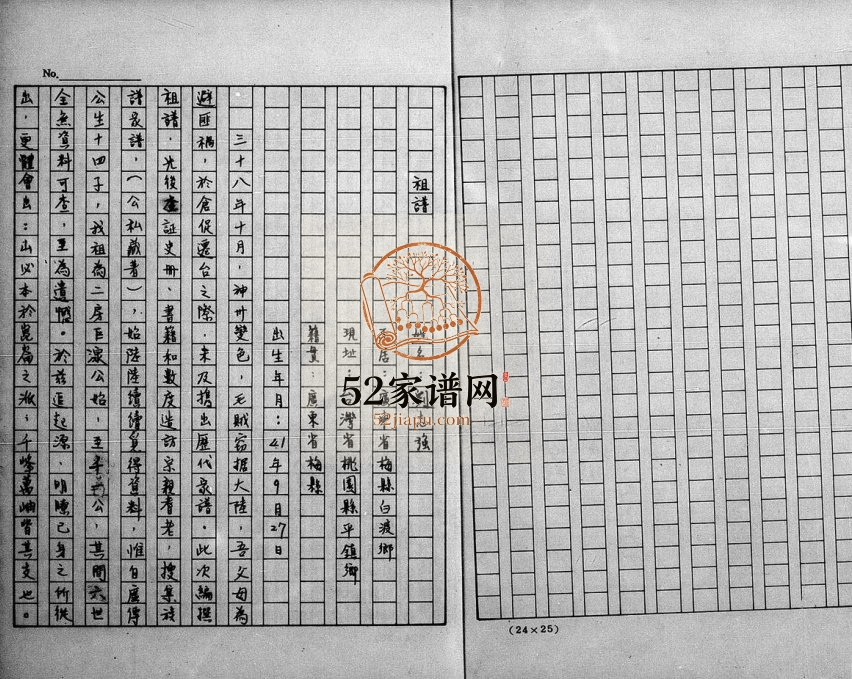 No.
祖譜
強
居：廣東省梅縣白渡鄉
現址：台灣省桃園縣平鎮鄉
籍貫：廣東省梅縣
出生年月：41年9月27日
三十八年十月，神州變色，毛賊竊据大陸，吾父母為
避匪禍，於倉促遷台之際，未及携出歷代家譜。此次編撰
祖譜，先後查証史册、書籍和數度造訪宗親耆老，搜集族
譜家譜，（公私藏著），始陸陸續續覓得資料，惟自廣傳
公生十四子，我祖為二房巨源公始，至公，其間六世
全無資料可查，至為遺憾。於茲追起源，明瞭己身之所從
出，更體會出：山必本於崑崙之派，千峰萬岫皆其支也。
(24×25)
52家谱网
52jiapu.com